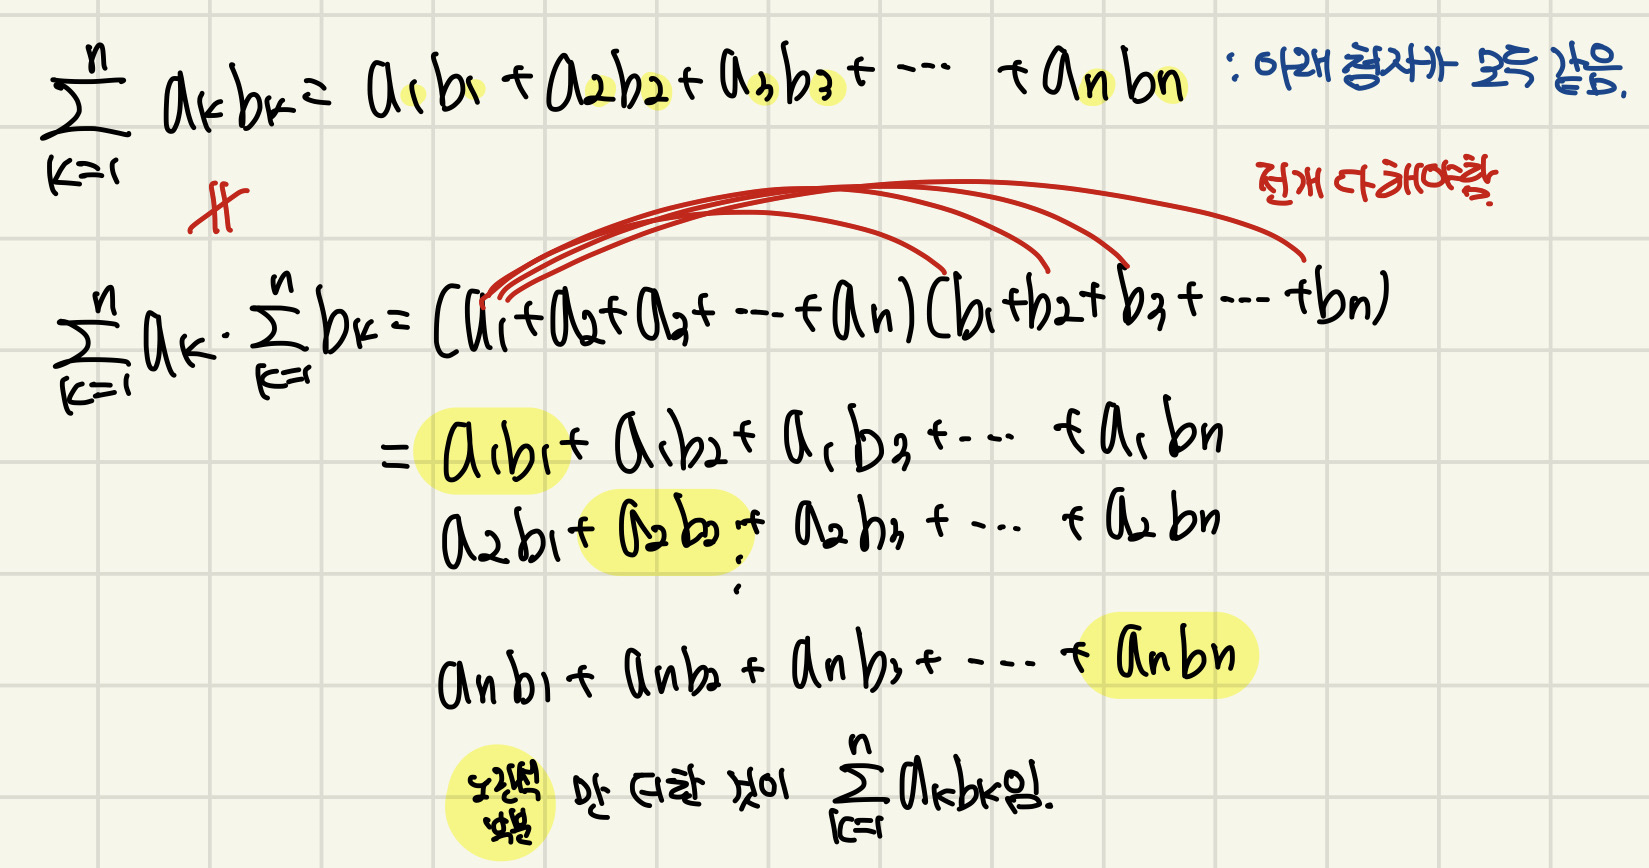 $\sum_{k=1}^{n} a_k b_k = a_1 b_1 + a_2 b_2 + a_3 b_3 + \cdots + a_n b_n$ : 아래 첨자가 모두 같음.
전개 다 해야함.
∦
$\sum_{k=1}^{n} a_k \cdot \sum_{k=1}^{n} b_k = (a_1 + a_2 + a_3 + \cdots + a_n)(b_1 + b_2 + b_3 + \cdots + b_n)$
$= a_1 b_1 + a_1 b_2 + a_1 b_3 + \cdots + a_1 b_n$
$a_2 b_1 + a_2 b_2 + a_2 b_3 + \cdots + a_2 b_n$
⋮
$a_n b_1 + a_n b_2 + a_n b_3 + \cdots + a_n b_n$
노란색 부분 만 더한 것이 $\sum_{k=1}^{n} a_k b_k$임.